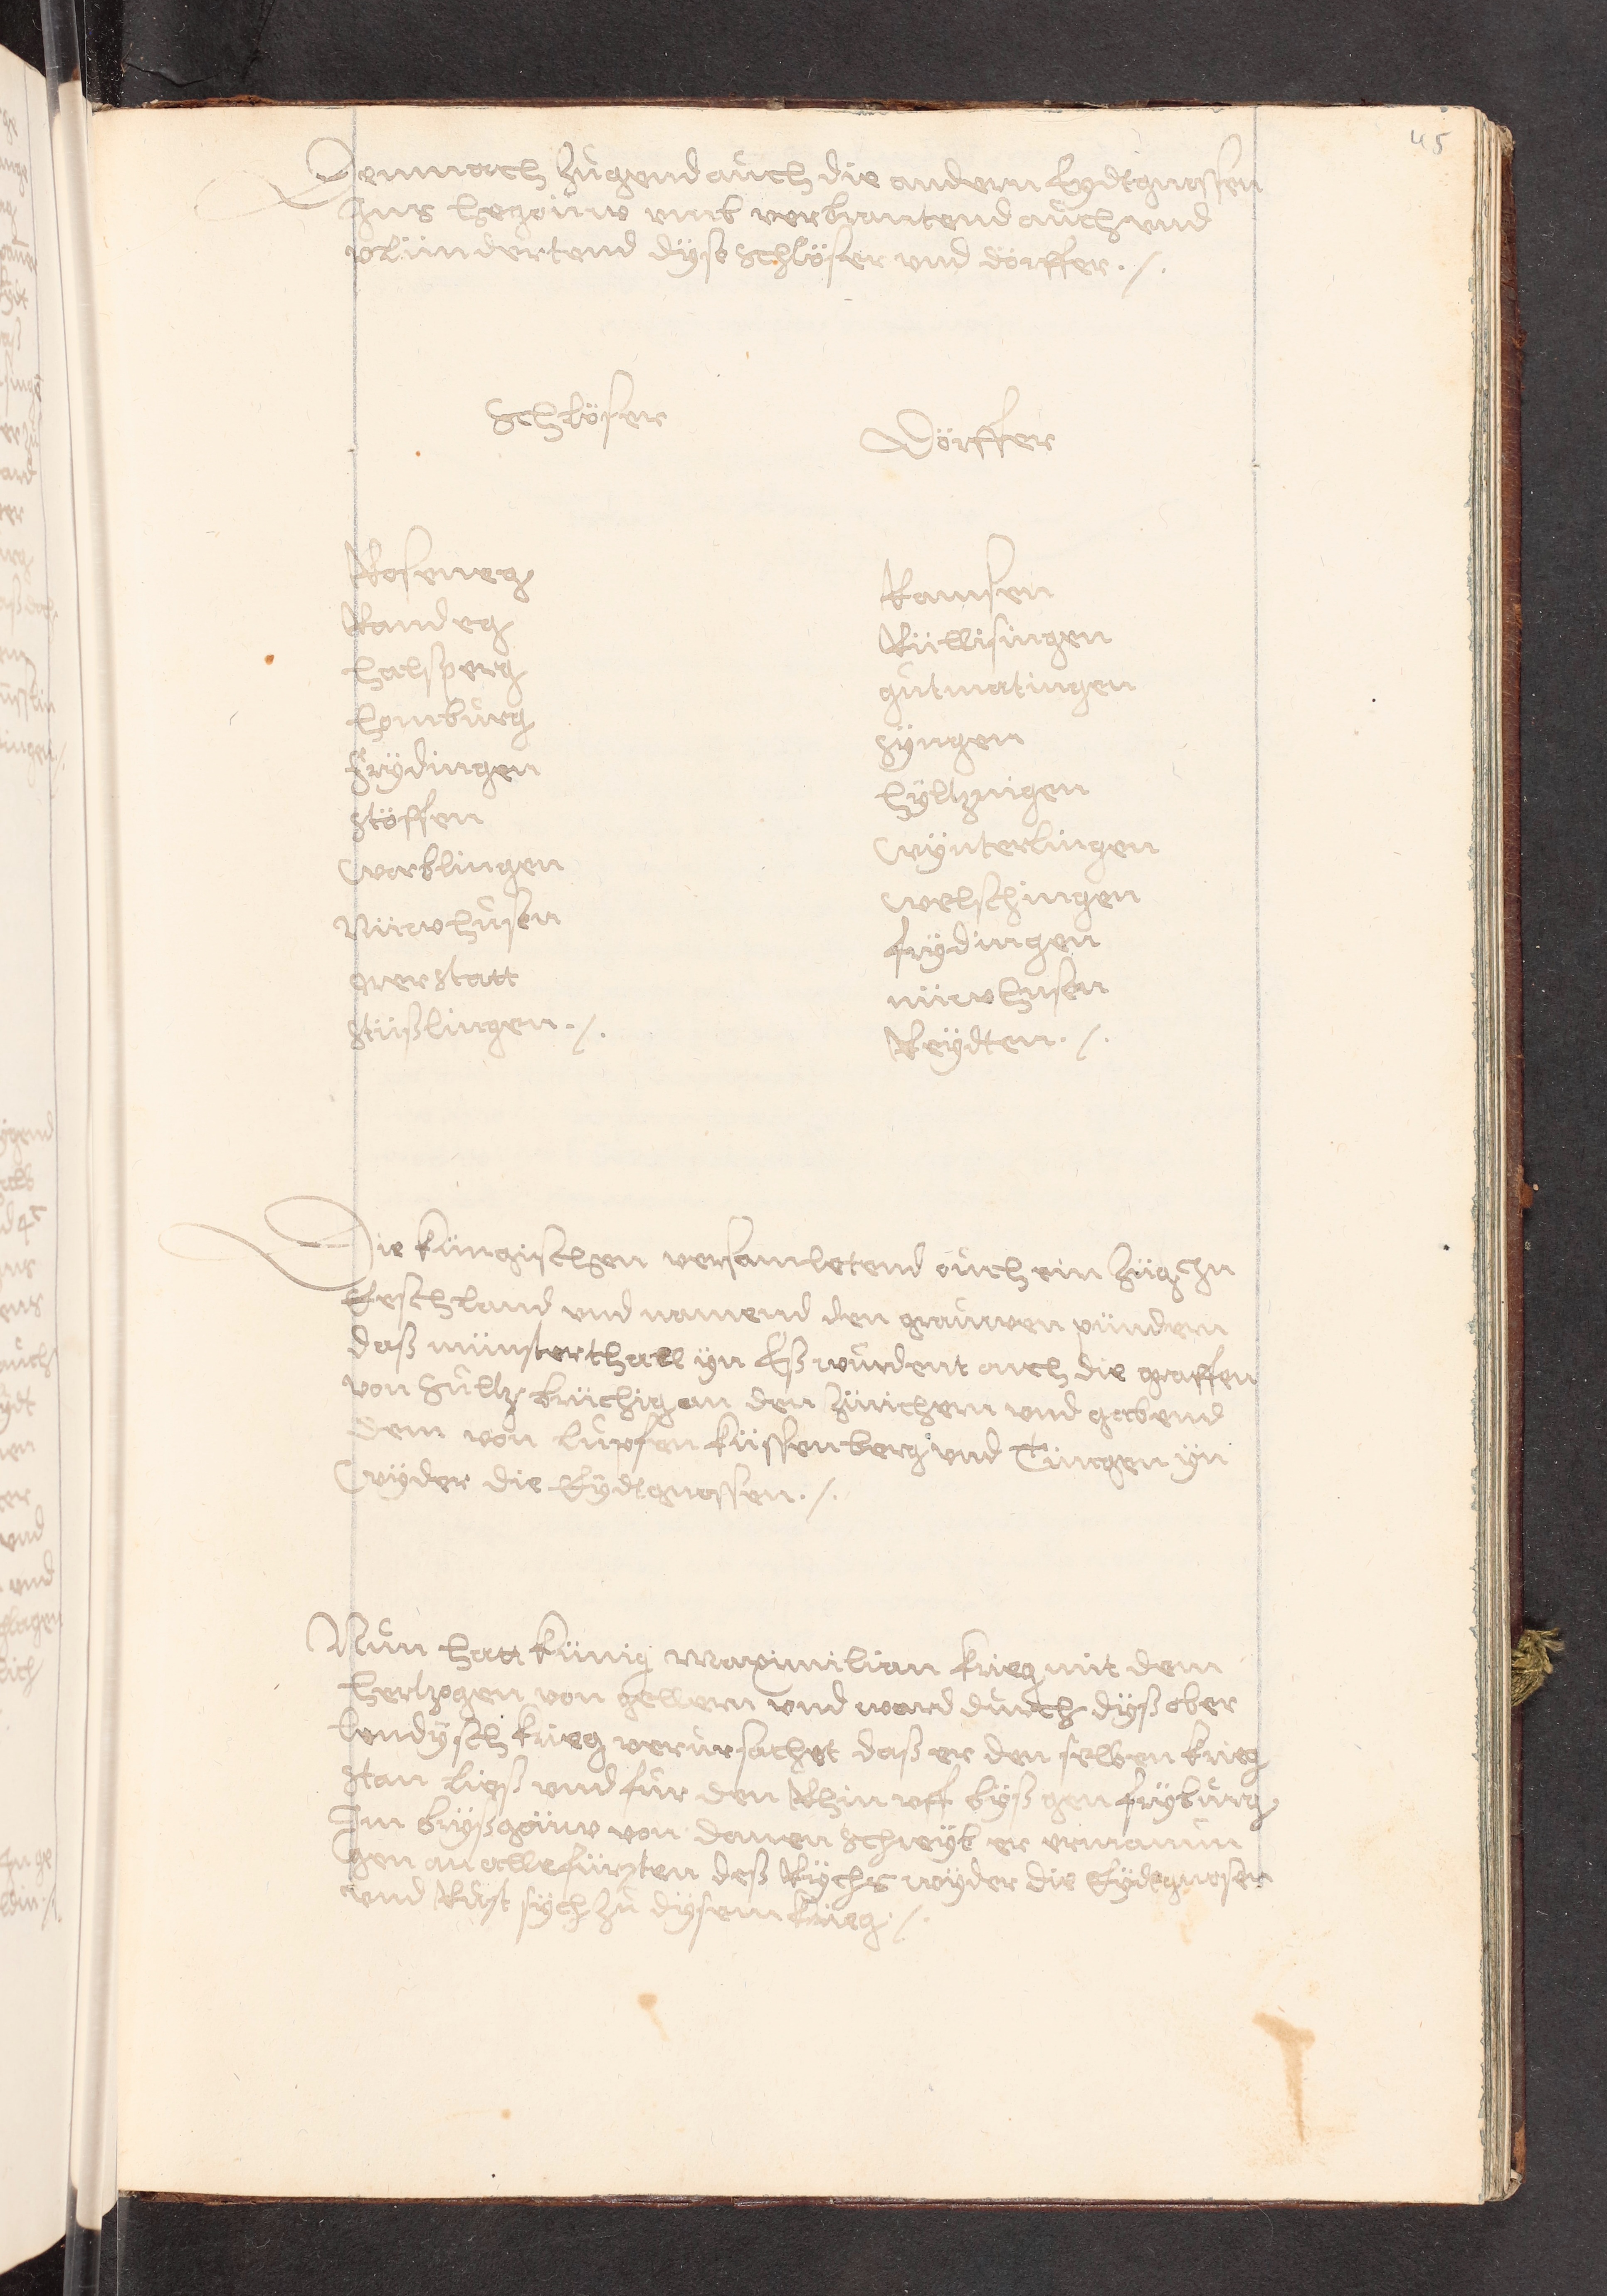 45
Demnach zugend auch die andern Eydtgnossen
Jns hegöuw unnd verbrantend auch und
plündertend dyse schlöser und dörffer ./.
Schlöser
Dörffer
Roseneg
Randeg
Halsperg
Homburg
Frydingen
Stöffen
Worblingen
Nüwhusen
Gerstatt
Stüsslingen ./.
Ramsen
Rüllisingen
Gutmatingen
Syngen
Hyltzingen
Wynterlingen
Welschingen
frydingen
nüwhusen
Reydten ./.
Die küngischen versamletend ouch ein zug im
Etschland und namend den grauwen pündern
dass münsterthall yn Ess wurdent auch die graffen
von Sultz brüchig an den Zürichern und gabend
dem von Lupfen küssenberg und Tüngen yn
Wyder die Eydtgnossen ./.
Nun hatt künig maximilian krieg mit dem
hertzogen von gellern und ward durch dyss ober
lendysch krieg verursachet dass er den selben krieg
stan liess und fur den Rhin uff byss gen fryburg
Jm bryssgöuw von dannen schreyb er ermanun
gen an alle fürsten dess Rychs wyder die Eydtgnosen
und Rust sych zu dysem krieg ./.